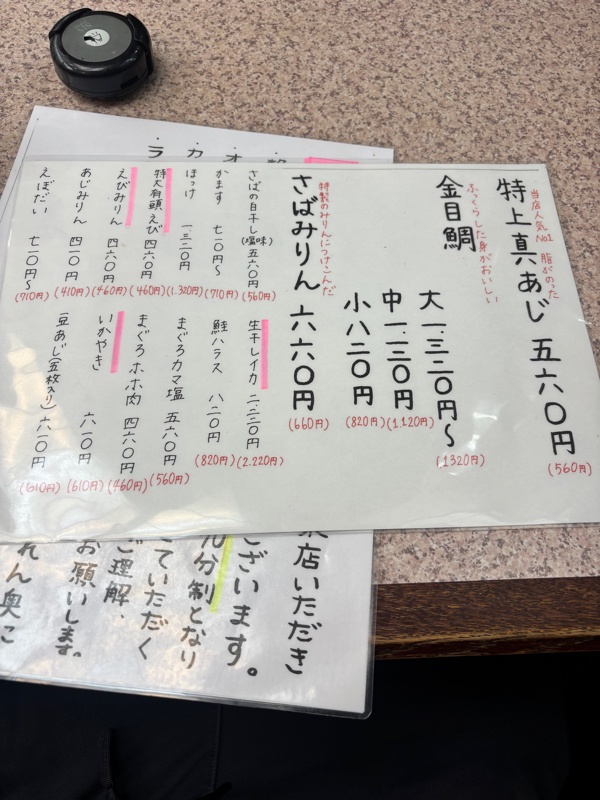 当店人気No1 脂がのった
特上真あじ 五六〇円
(560円)
ふっくらした身がおいしい
金目鯛
大 一.三二〇円〜
(1320円)
中 一.一二〇円
(1,120円)
小 八二〇円
(820円)
特製のみりんにつけこんだ
さばみりん 六六〇円
(660円)
さばの白干し(塩味) 五六〇円
(560円)
かます 七一〇円〜
(710円)
ほっけ 一.三二〇円
(1.320円)
特大有頭えび 四六〇円
(460円)
えびみりん 四六〇円
(460円)
あじみりん 四一〇円
(410円)
えぼだい 七一〇円〜
(710円)
生干しイカ 二.二二〇円
(2.220円)
鮭ハラス 八二〇円
(820円)
まぐろカマ塩 五六〇円
(560円)
まぐろホホ肉 四六〇円
(460円)
いかやき 六一〇円
(610円)
豆あじ(五枚入り) 六一〇円
(610円)
オ
カ
ラ
来店いただき
ございます。
分制となり
ていただく
ご理解、
お願いします。
れん奥こ